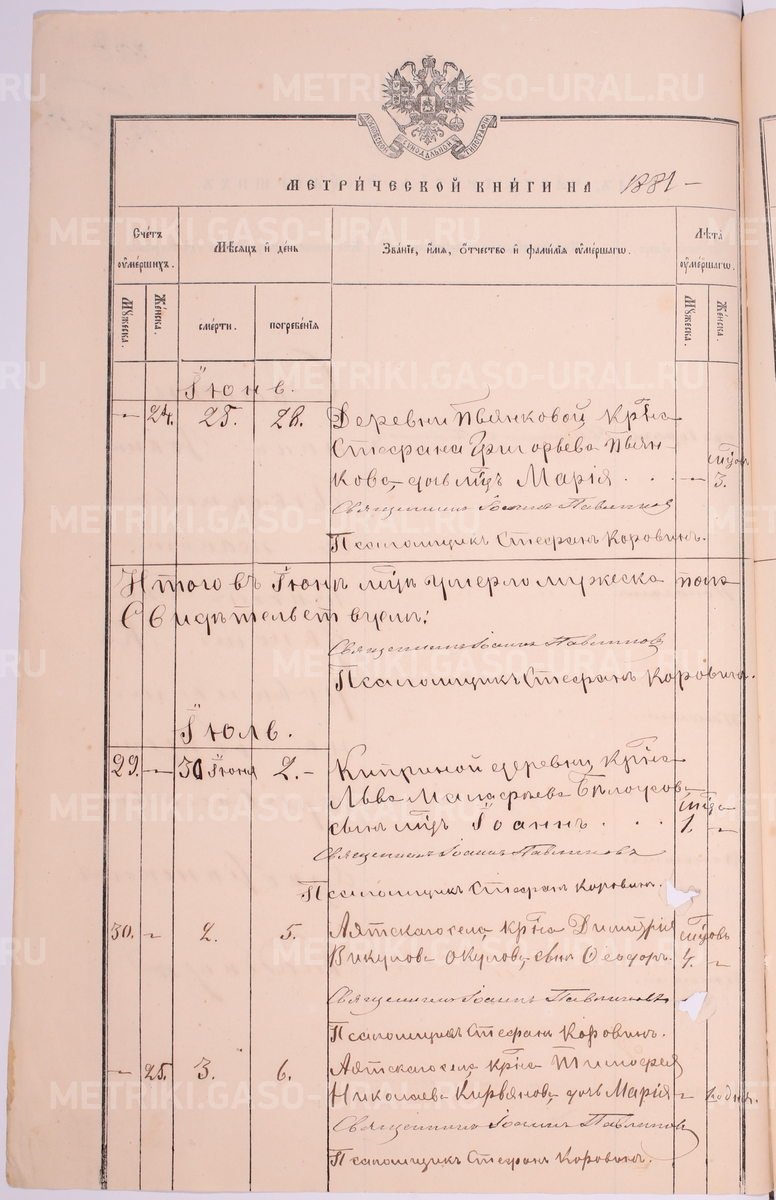 МОСКОВСКОЙ СѴНОДАЛЬНОЙ ТИПОГРАФІИ
МЕТРИ́ЧЕСКОЙ КНИ́ГИ НА 1881 –
Сче́тъ ᲂу҆ме́ршихъ.
Мѣ́сѧцъ и҆ де́нь
Зва́нїе, и҆́мѧ, ѻ҆́тчество и҆ фами́лїѧ ᲂу҆ме́ршагѡ.
Лѣ́та ᲂу҆ме́ршагѡ.
Мꙋ́жеска.
Же́нска.
сме́рти.
погребе́нїѧ
Мꙋ́жеска.
Же́нска.
Іюнь.
– 24. 25. 28. Деревни Пьянковой крⷭ҇на
Стефана Григорьева Пьян-
кова, дочь мл҃цъ Марія . . . – 3.
Священникъ Іоаннъ Павлиновъ
Псаломщикъ Стефанъ Коровинъ.
Итого въ Іюнѣ мцѣ умерло мужеска пола
Свидѣтельствуемъ:
Священникъ Іоаннъ Павлиновъ
Псаломщикъ Стефанъ Коровинъ.
Іюль.
29. – 30 Іюня 2. – Киприной деревни, крⷭ҇на
Льва Малафѣева Бѣлоусова
сынъ мл҃цъ Іоаннъ . . . 1. –
Священникъ Іоаннъ Павлиновъ
Псаломщикъ Стефанъ Коровинъ.
30. – 2. 5. Аятскаго села, крⷭ҇на Димитрія
Викулова Окулова, сынъ Ѳеодоръ. 4. –
Священникъ Іоаннъ Павлиновъ
Псаломщикъ Стефанъ Коровинъ.
– 25. 3. 6. Аятскаго села крⷭ҇на Тимофея
Николаева Кирьянова, дочь Марія –
Священникъ Іоаннъ Павлиновъ
Псаломщикъ Стефанъ Коровинъ.
METRIKI.GASO-URAL.RU